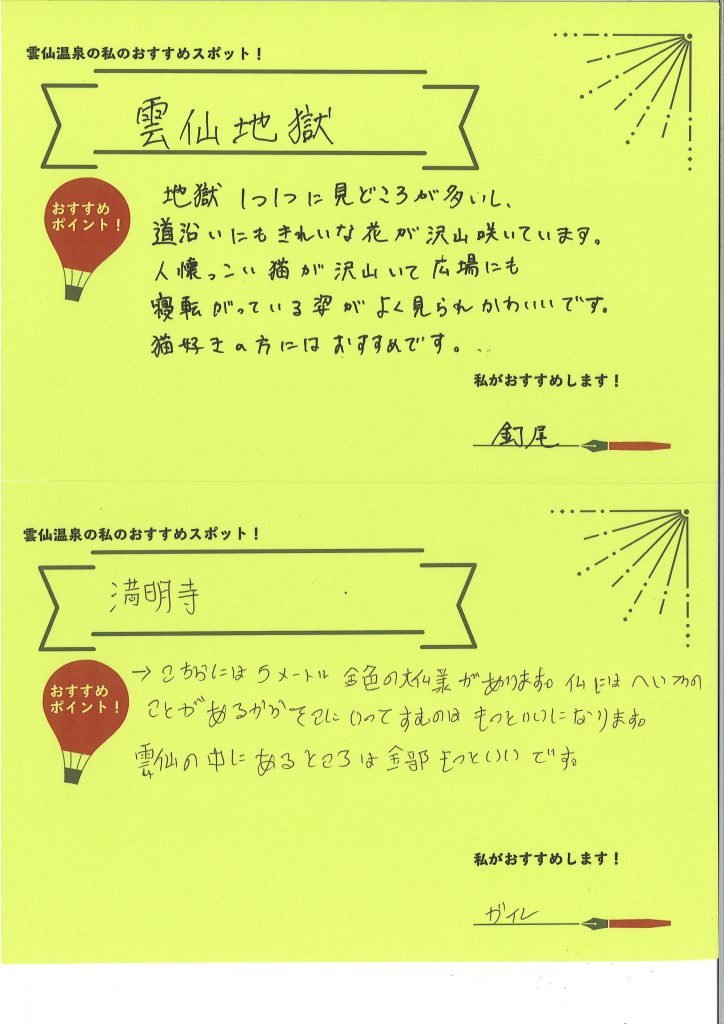 雲仙温泉の私のおすすめスポット！
雲仙地獄
おすすめ
ポイント！
地獄1つ1つに見どころが多いし、
道沿いにもきれいな花が沢山咲いています。
人懐っこい猫が沢山いて広場にも
寝転がっている姿がよく見られかわいいです。
猫好きの方にはおすすめです。
私がおすすめします！
釘尾
雲仙温泉の私のおすすめスポット！
満明寺
おすすめ
ポイント！
→こちらには5メートル金色の大仏があります。仏にはへいわの
ことがあるからそこにいってすむのはもっといいになります。
雲仙の中にあるところは全部もっといいです。
私がおすすめします！
ガイレ